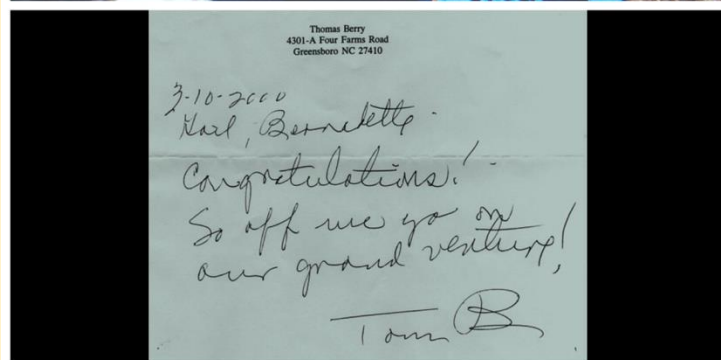 Thomas Berry
4301-A Four Farms Road
Greensboro NC 27410
3-10-2000
Hail, Bernadette
Congratulations!
So off we go on
our grand venture!
Tom B